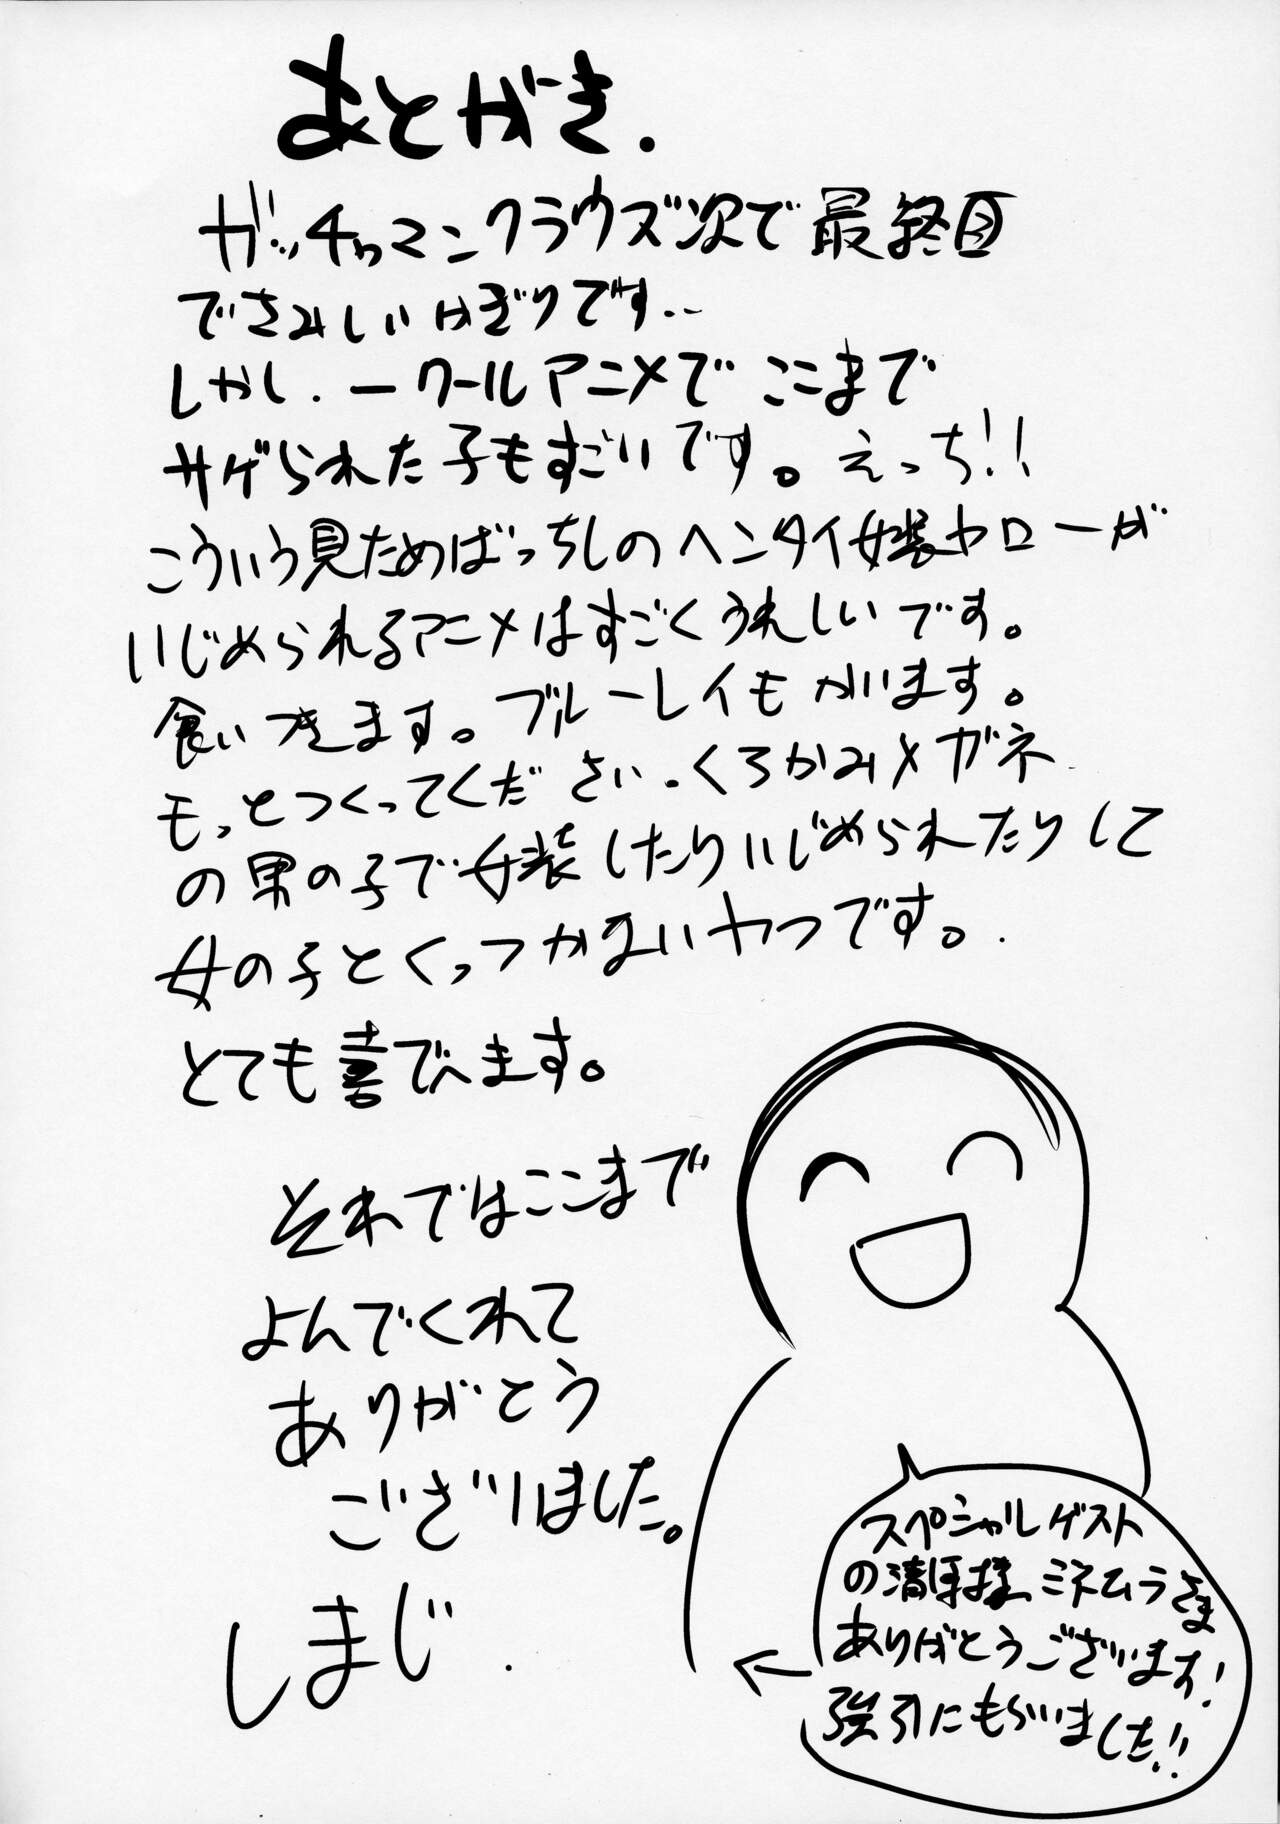 あとがき.
ガッチャマンクラウズ次で最終回
でさみしいかぎりです..
しかし.一クールアニメでここまで
サゲられた子もすごいです。えっち!!
こういう見ためばっちしのヘンタイ女装ヤローが
いじめられるアニメはすごくうれしいです。
食いつきます。ブルーレイもかいます。
もっとつくってください.くろかみメガネ
の男の子で女装したりいじめられたりして
女の子とくっつかないヤつです。
とても喜びます。
それではここまで
よんでくれて
ありがとう
ございました。
しまじ.
スペシャルゲスト
の清保様、ミネムラさま
ありがとうございます!
強引にもらいました!!